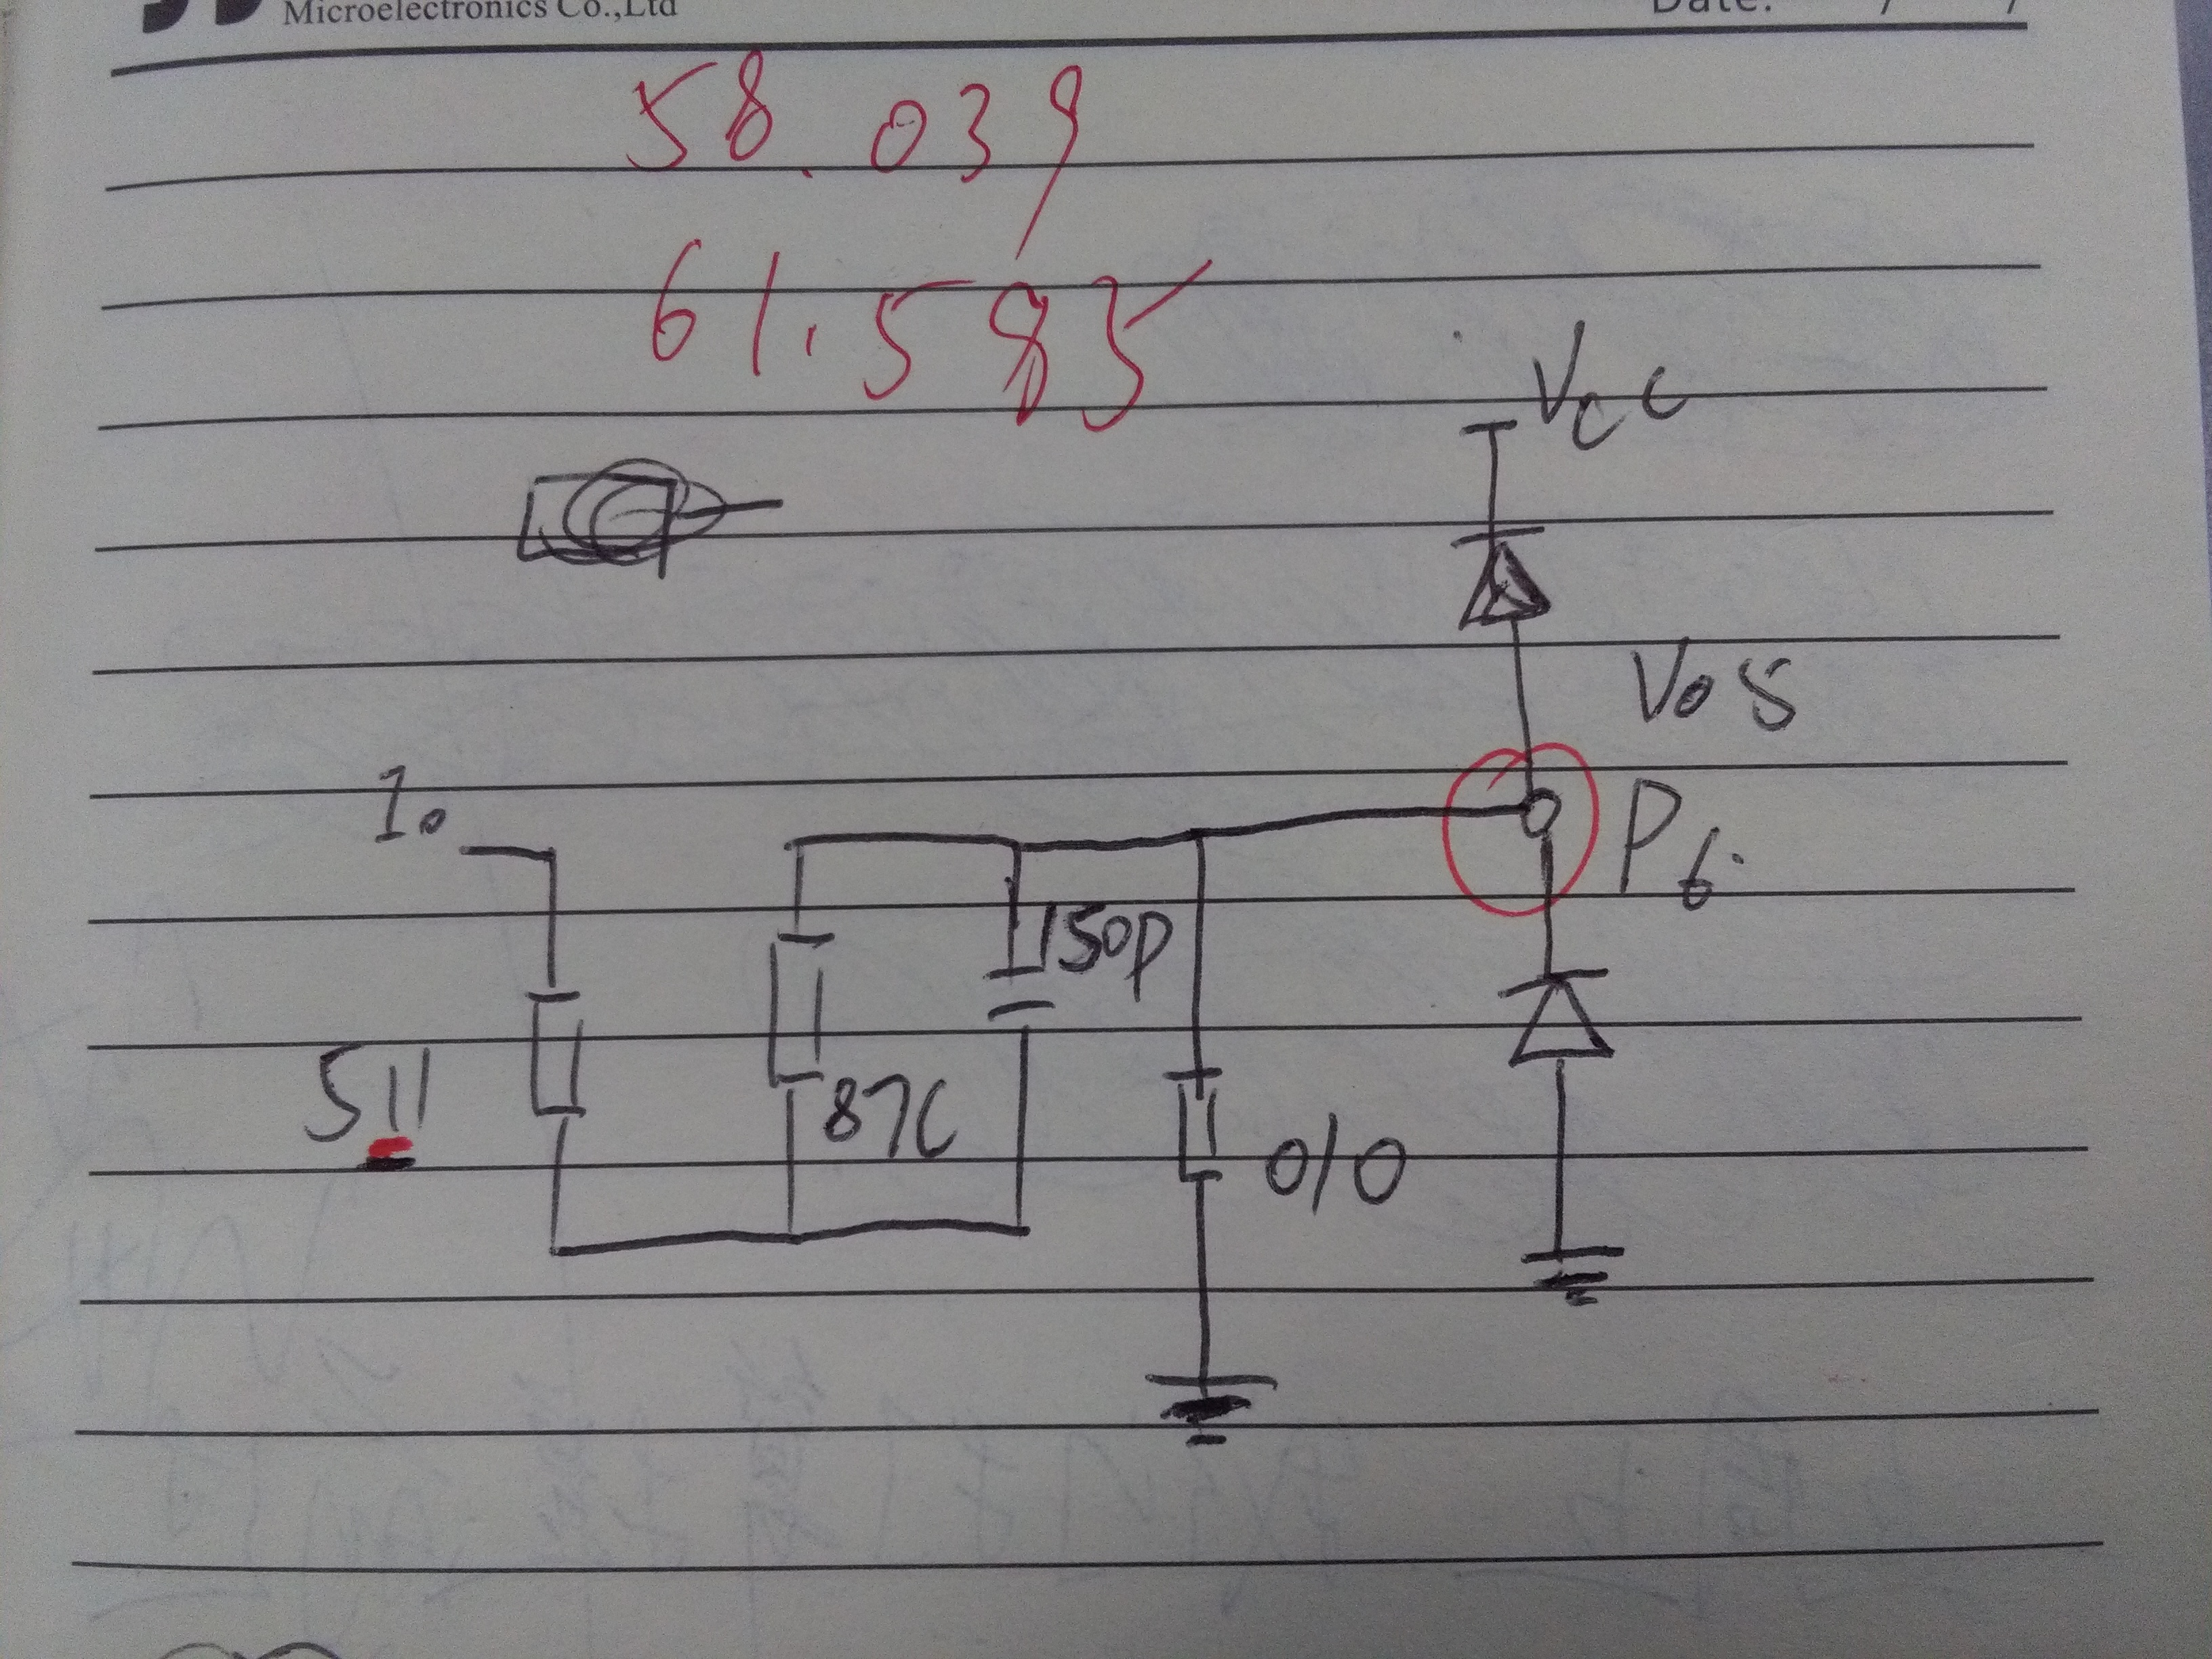 Microelectronics Co.,Ltd
Date: / /
58.039
61.585
Vcc
Vos
Io
P6.
150p
511
87C
010